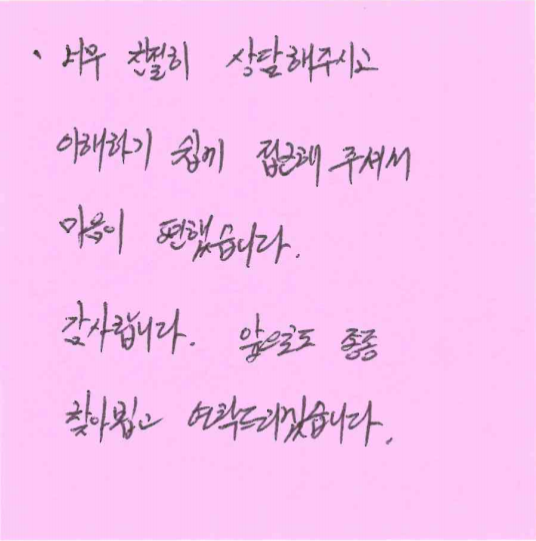 너무 친절히 상담해주시고
이해하기 쉽게 접근해 주셔서
마음이 편했습니다.
감사합니다. 앞으로도 종종
찾아뵙고 연락드리겠습니다.